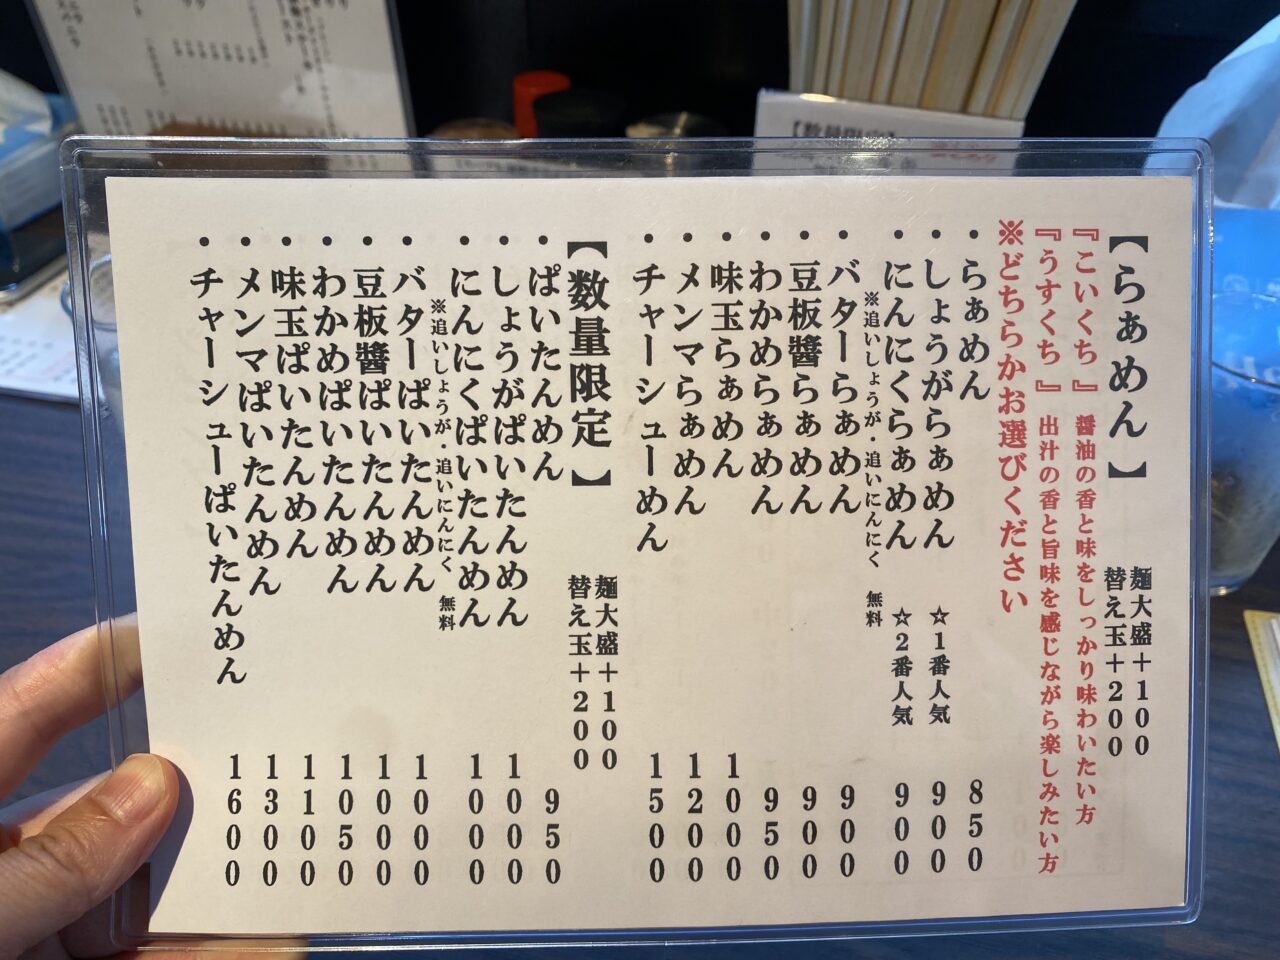 【らぁめん】 麺大盛＋100
替え玉＋200
『こいくち』醤油の香と味をしっかり味わいたい方
『うすくち』出汁の香と旨味を感じながら楽しみたい方
※どちらかお選びください
・らぁめん 850
・しょうがらぁめん ☆1番人気 900
・にんにくらぁめん ☆2番人気 900
※追いしょうが・追いにんにく 無料
・バターらぁめん 900
・豆板醬らぁめん 900
・わかめらぁめん 950
・味玉らぁめん 1000
・メンマらぁめん 1200
・チャーシューめん 1500
【数量限定】 麺大盛＋100
替え玉＋200
・ぱいたんめん 950
・しょうがぱいたんめん 1000
・にんにくぱいたんめん 1000
※追いしょうが・追いにんにく 無料
・バターぱいたんめん 1000
・豆板醬ぱいたんめん 1000
・わかめぱいたんめん 1050
・味玉ぱいたんめん 1100
・メンマぱいたんめん 1300
・チャーシューぱいたんめん 1600